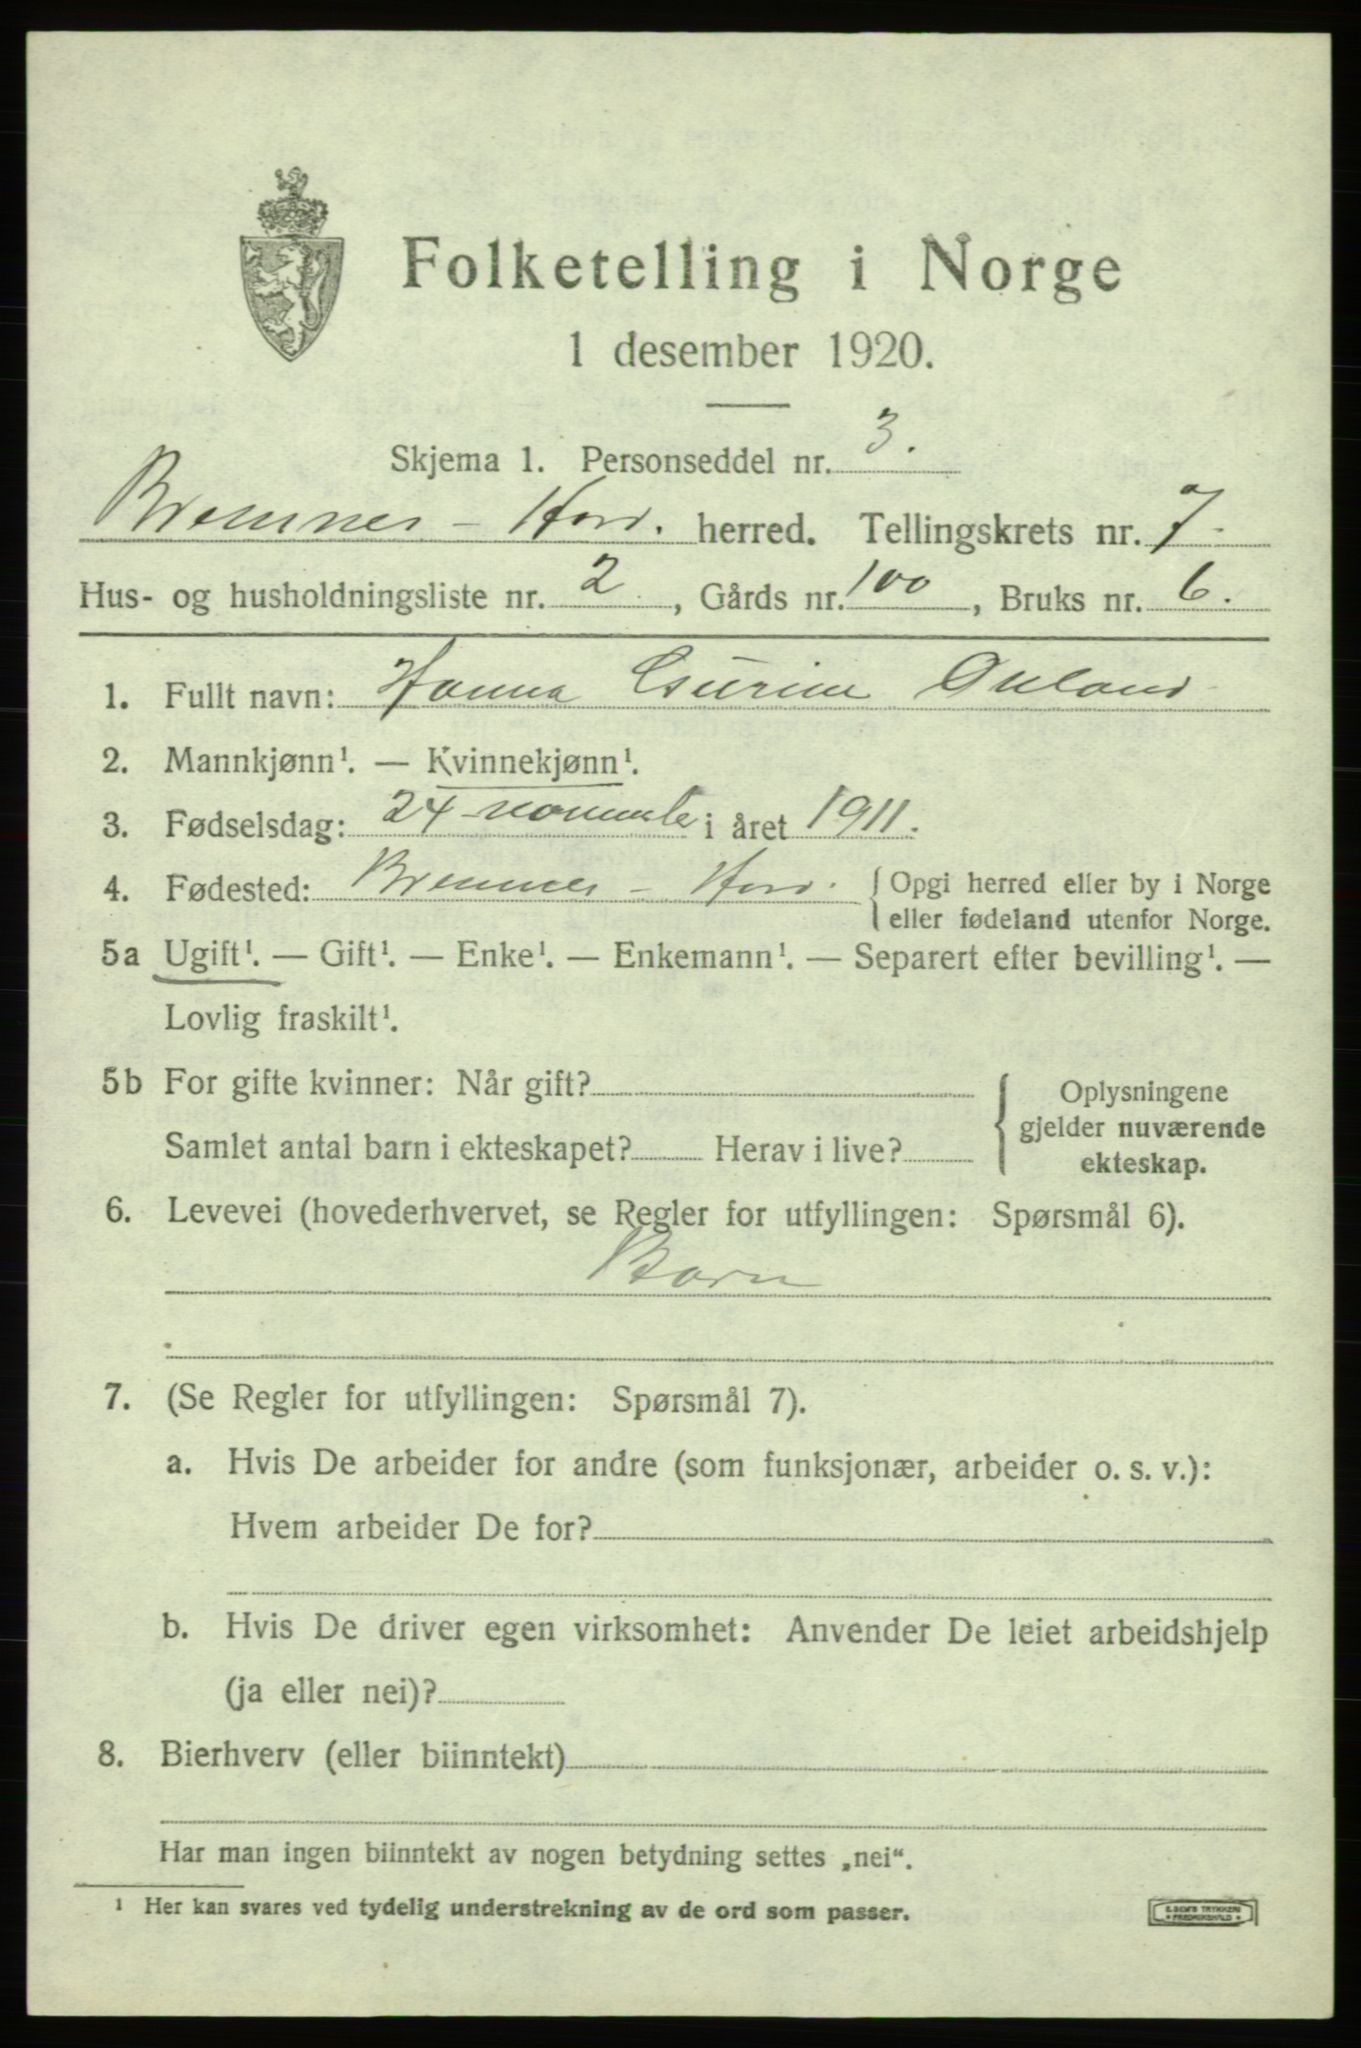 Folketelling i Norge
1 desember 1920.
Skjema 1. Personseddel nr. 3.
Bremnes - Hord. herred. Tellingskrets nr. 7.
Hus- og husholdningsliste nr. 2, Gårds nr. 100, Bruks nr. 6.
1. Fullt navn: Hanna
2. Mannkjønn¹. — Kvinnekjønn¹.
3. Fødselsdag: 24 november i året 1911.
4. Fødested: Bremnes - Hord. { Opgi herred eller by i Norge
eller fødeland utenfor Norge.
5a Ugift¹. — Gift¹. — Enke¹. — Enkemann¹. — Separert efter bevilling¹. —
Lovlig fraskilt¹.
5b For gifte kvinner: Når gift?
Samlet antal barn i ekteskapet? Herav i live?
{ Oplysningene
gjelder nuværende
ekteskap.
6. Levevei (hovederhvervet, se Regler for utfyllingen: Spørsmål 6).
Barn
7. (Se Regler for utfyllingen: Spørsmål 7).
a. Hvis De arbeider for andre (som funksjonær, arbeider o. s. v.):
Hvem arbeider De for?
b. Hvis De driver egen virksomhet: Anvender De leiet arbeidshjelp
(ja eller nei)?
8. Bierhverv (eller biinntekt)
Har man ingen biinntekt av nogen betydning settes „nei“.
¹ Her kan svares ved tydelig understrekning av de ord som passer.